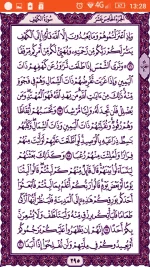 4G 13:28
الجزء الخامس عشر سورة الكهف
وَإِذِ ٱعْتَزَلْتُمُوهُمْ وَمَا يَعْبُدُونَ إِلَّا ٱللَّهَ فَأْوُۥٓا۟ إِلَى ٱلْكَهْفِ
يَنشُرْ لَكُمْ رَبُّكُم مِّن رَّحْمَتِهِۦ وَيُهَيِّئْ لَكُم مِّنْ أَمْرِكُم مِّرْفَقًا
۞ وَتَرَى ٱلشَّمْسَ إِذَا طَلَعَت تَّزَٰوَرُ عَن كَهْفِهِمْ ذَاتَ
ٱلْيَمِينِ وَإِذَا غَرَبَت تَّقْرِضُهُمْ ذَاتَ ٱلشِّمَالِ وَهُمْ فِى فَجْوَةٍ
مِّنْهُ ۚ ذَٰلِكَ مِنْ ءَايَٰتِ ٱللَّهِ ۗ مَن يَهْدِ ٱللَّهُ فَهُوَ ٱلْمُهْتَدِ ۖ وَمَن
يُضْلِلْ فَلَن تَجِدَ لَهُۥ وَلِيًّا مُّرْشِدًا ١٧ وَتَحْسَبُهُمْ أَيْقَاظًا
وَهُمْ رُقُودٌ ۚ وَنُقَلِّبُهُمْ ذَاتَ ٱلْيَمِينِ وَذَاتَ ٱلشِّمَالِ ۖ وَكَلْبُهُم
بَٰسِطٌ ذِرَاعَيْهِ بِٱلْوَصِيدِ ۚ لَوِ ٱطَّلَعْتَ عَلَيْهِمْ لَوَلَّيْتَ مِنْهُمْ
فِرَارًا وَلَمُلِئْتَ مِنْهُمْ رُعْبًا ١٨ وَكَذَٰلِكَ بَعَثْنَٰهُمْ
لِيَتَسَآءَلُوا۟ بَيْنَهُمْ ۚ قَالَ قَآئِلٌ مِّنْهُمْ كَمْ لَبِثْتُمْ ۖ قَالُوا۟ لَبِثْنَا
يَوْمًا أَوْ بَعْضَ يَوْمٍ ۚ قَالُوا۟ رَبُّكُمْ أَعْلَمُ بِمَا لَبِثْتُمْ فَٱبْعَثُوٓا۟
أَحَدَكُم بِوَرِقِكُمْ هَٰذِهِۦٓ إِلَى ٱلْمَدِينَةِ فَلْيَنظُرْ أَيُّهَآ أَزْكَىٰ
طَعَامًا فَلْيَأْتِكُم بِرِزْقٍ مِّنْهُ وَلْيَتَلَطَّفْ وَلَا يُشْعِرَنَّ
بِكُمْ أَحَدًا ١٩ إِنَّهُمْ إِن يَظْهَرُوا۟ عَلَيْكُمْ يَرْجُمُوكُمْ
أَوْ يُعِيدُوكُمْ فِى مِلَّتِهِمْ وَلَن تُفْلِحُوٓا۟ إِذًا أَبَدًا ٢٠
٢٩٥